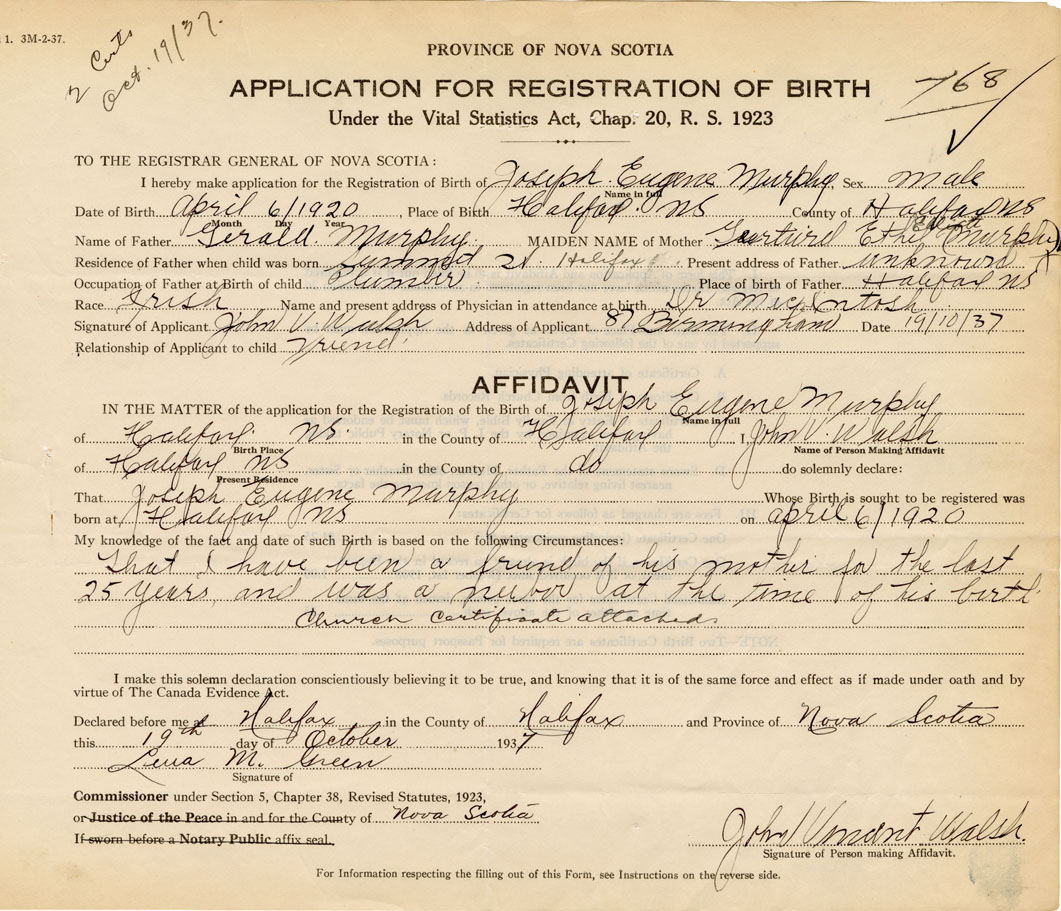 1. 3M-2-37.
2 Certs
Oct. 19/37.
768
PROVINCE OF NOVA SCOTIA
APPLICATION FOR REGISTRATION OF BIRTH
Under the Vital Statistics Act, Chap. 20, R. S. 1923
TO THE REGISTRAR GENERAL OF NOVA SCOTIA:
I hereby make application for the Registration of Birth of Joseph Eugene Murphy Sex male
Name in full
Date of Birth april 6/1920, Place of Birth Halifax NS County of Halifax NS
Month Day Year
Name of Father Gerald Murphy MAIDEN NAME of Mother Ethel (Murphy)
Residence of Father when child was born Summit St. Halifax Present address of Father unknown
Occupation of Father at Birth of child Plumber Place of birth of Father Halifax NS
Race Irish Name and present address of Physician in attendance at birth Dr MacIntosh
Signature of Applicant John V Walsh Address of Applicant 87 Date 19/10/37
Relationship of Applicant to child Friend
AFFIDAVIT
IN THE MATTER of the application for the Registration of the Birth of Joseph Eugene Murphy
Name in full
of Halifax NS in the County of Halifax I, John V Walsh
Birth Place Name of Person Making Affidavit
of Halifax NS in the County of do do solemnly declare:
Present Residence
That Joseph Eugene Murphy Whose Birth is sought to be registered was
born at Halifax NS on april 6/1920
My knowledge of the fact and date of such Birth is based on the following Circumstances:
That I have been a friend of his mother for the last
25 years, and was a at the time of his birth
Church certificate attached.
I make this solemn declaration conscientiously believing it to be true, and knowing that it is of the same force and effect as if made under oath and by
virtue of The Canada Evidence Act.
Declared before me at Halifax in the County of Halifax and Province of Nova Scotia
this 19th day of October 1937
Lena M. Green
Signature of
Commissioner under Section 5, Chapter 38, Revised Statutes, 1923,
or Justice of the Peace in and for the County of Nova Scotia
If sworn before a Notary Public affix seal.
John Vincent Walsh
Signature of Person making Affidavit.
For Information respecting the filling out of this Form, see Instructions on the reverse side.